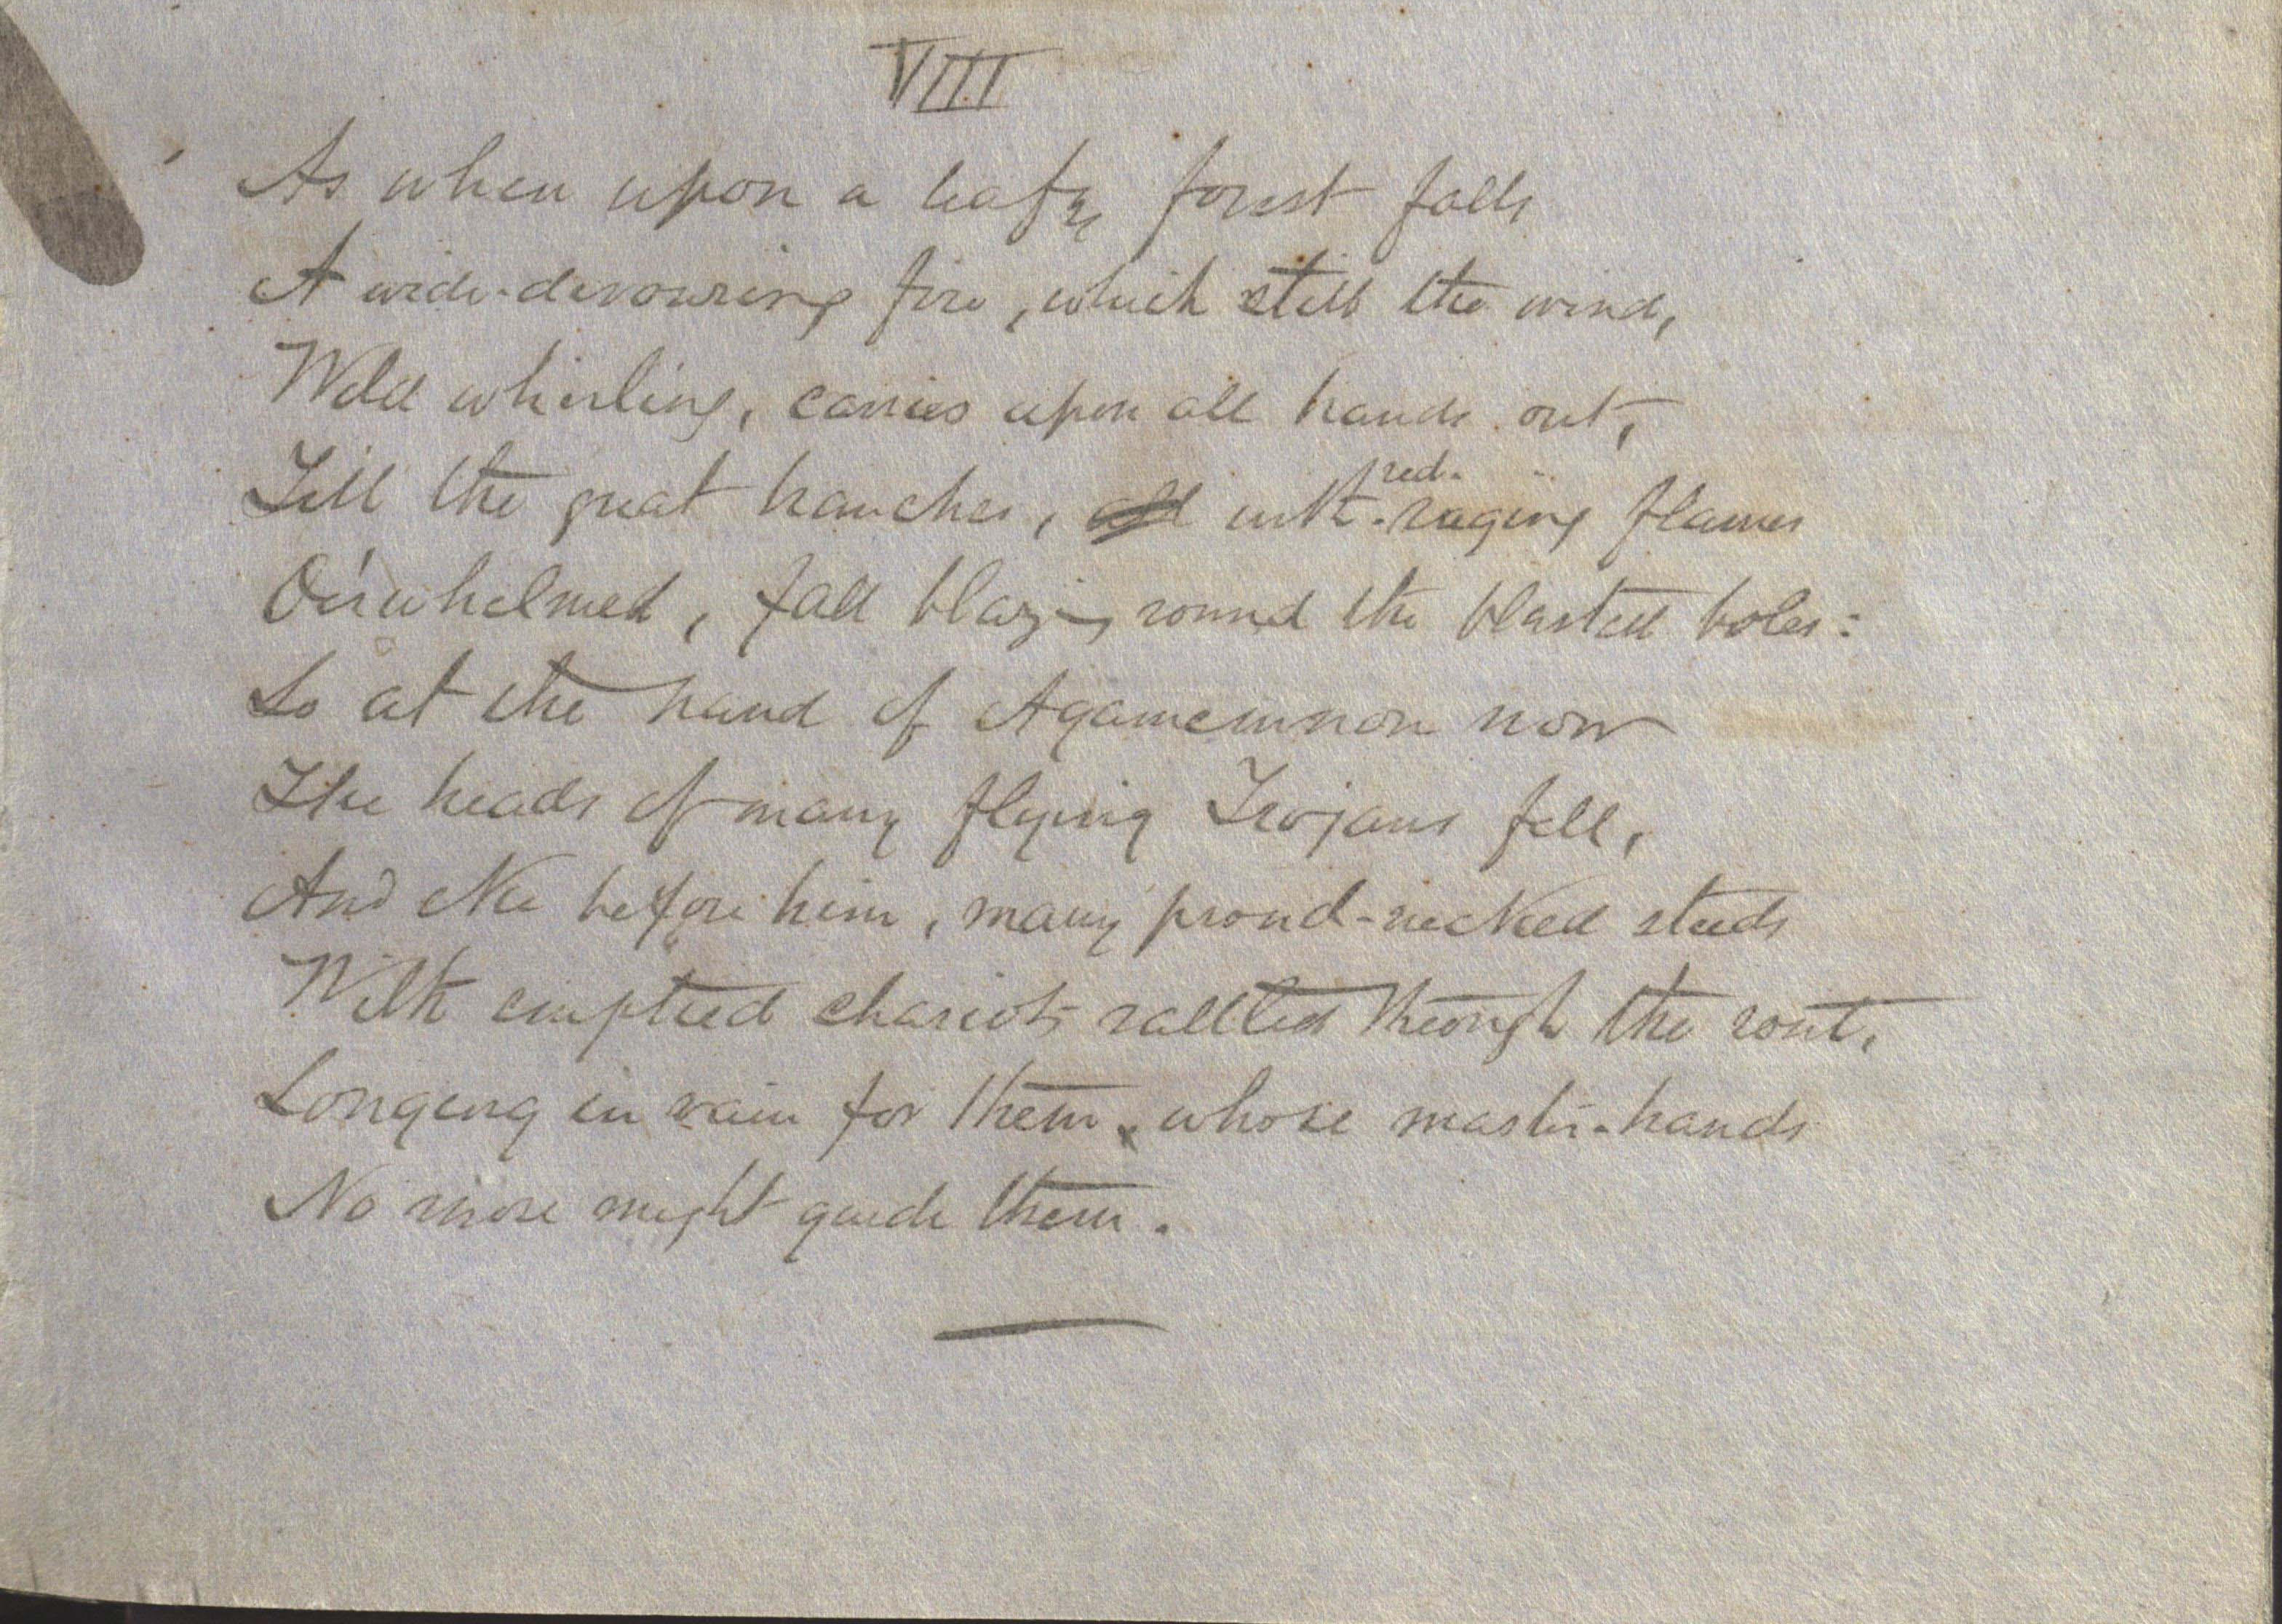 VIII
As when upon a leafy forest falls
A wide-devouring fire, which still the wind,
Wild whirling, carries upon all hands out,
Till the great branches, all with red-raging flames
O'erwhelmed, fall blazing round the blasted boles:
So at the hand of Agamemnon now
The heads of many flying Trojans fell,
And eke before him, many proud-necked steeds
With emptied chariots rattled through the rout,
Longing in vain for them, whose master-hands
No more might guide them.